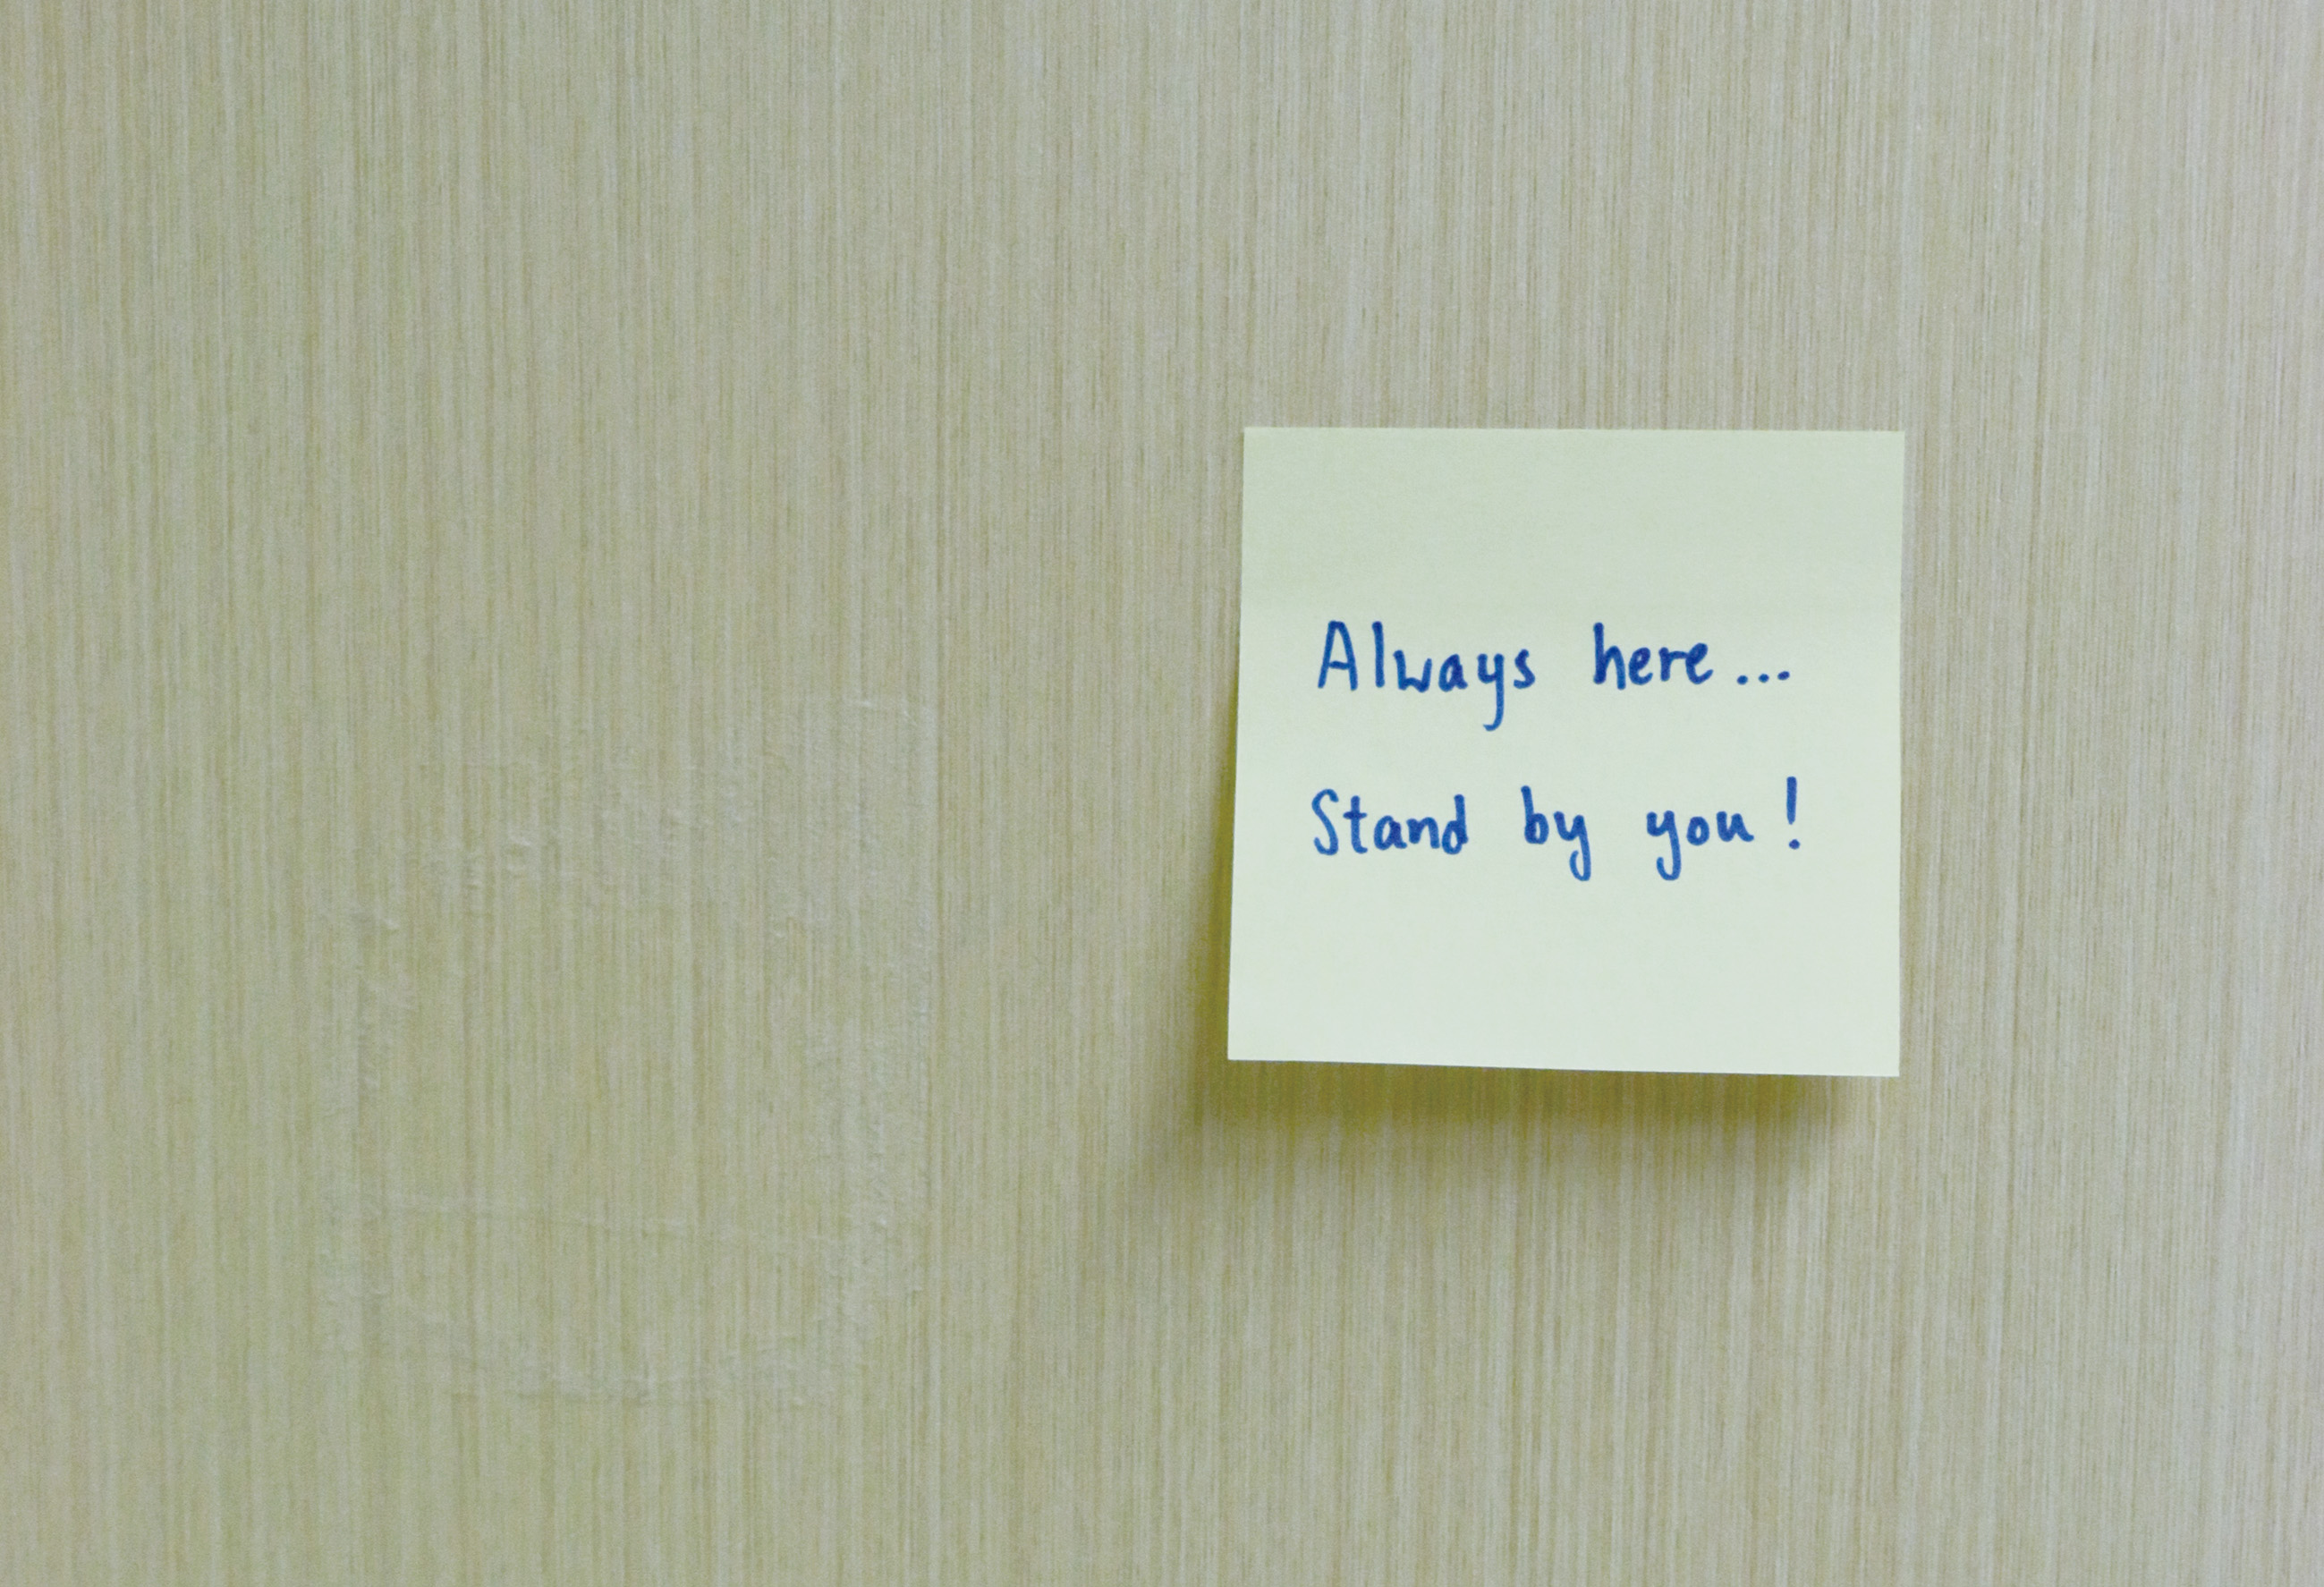 Always here...
Stand by you!